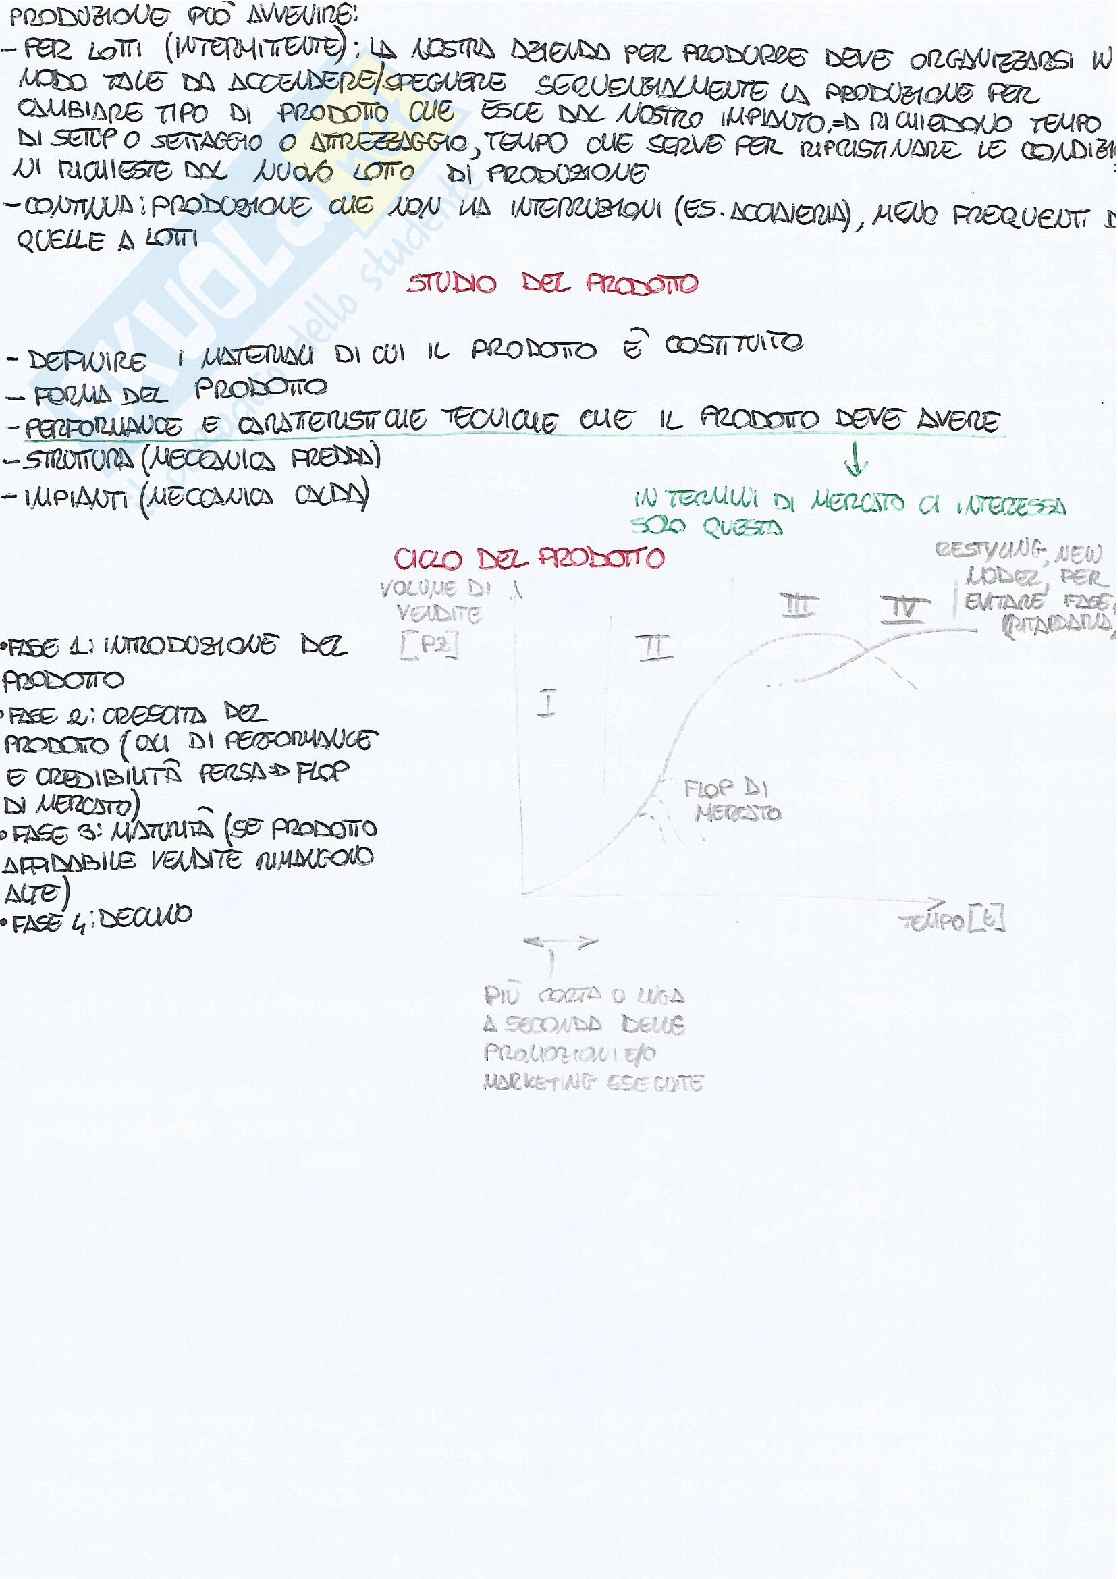 PRODUZIONE PUÒ AVVENIRE:
- PER LOTTI (INTERMITTENTE): LA NOSTRA AZIENDA PER PRODURRE DEVE ORGANIZZARSI IN
MODO TALE DA ACCENDERE/SPEGNERE SEQUENZIALMENTE LA PRODUZIONE PER
CAMBIARE TIPO DI PRODOTTO CHE ESCE DAL NOSTRO IMPIANTO, => RICHIEDONO TEMPO
DI SETUP O SETTAGGIO O ATTREZZAGGIO, TEMPO CHE SERVE PER RIPRISTINARE LE CONDIZIO
NI RICHIESTE DAL NUOVO LOTTO DI PRODUZIONE
- CONTINUA: PRODUZIONE CHE NON HA INTERRUZIONI (ES. ACCIAIERIA), MENO FREQUENTI DI
QUELLE A LOTTI
STUDIO DEL PRODOTTO
- DEFINIRE I MATERIALI DI CUI IL PRODOTTO È COSTITUITO
- FORMA DEL PRODOTTO
- PERFORMANCE E CARATTERISTICHE TECNICHE CHE IL PRODOTTO DEVE AVERE
- STRUTTURA (MECCANICA FREDDA)
- IMPIANTI (MECCANICA CALDA)
IN TERMINI DI MERCATO CI INTERESSA
SOLO QUESTA
CICLO DEL PRODOTTO
VOLUME DI
VENDITE
[PZ]
I
II
III
IV
RESTYLING, NEW
MODEL, PER
EVITARE FASE
(RITARDARLA)
• FASE 1: INTRODUZIONE DEL
PRODOTTO
• FASE 2: CRESCITA DEL
PRODOTTO (CALI DI PERFORMANCE
E CREDIBILITÀ PERSA => FLOP
DI MERCATO)
• FASE 3: MATURITÀ (SE PRODOTTO
AFFIDABILE VENDITE RIMANGONO
ALTE)
• FASE 4: DECLINO
FLOP DI
MERCATO
TEMPO [t]
PIÙ CORTA O LUGA
A SECONDA DELLE
PROMOZIONI E/O
MARKETING ESEGUITE
SKUOLA.net
il paradiso dello studente